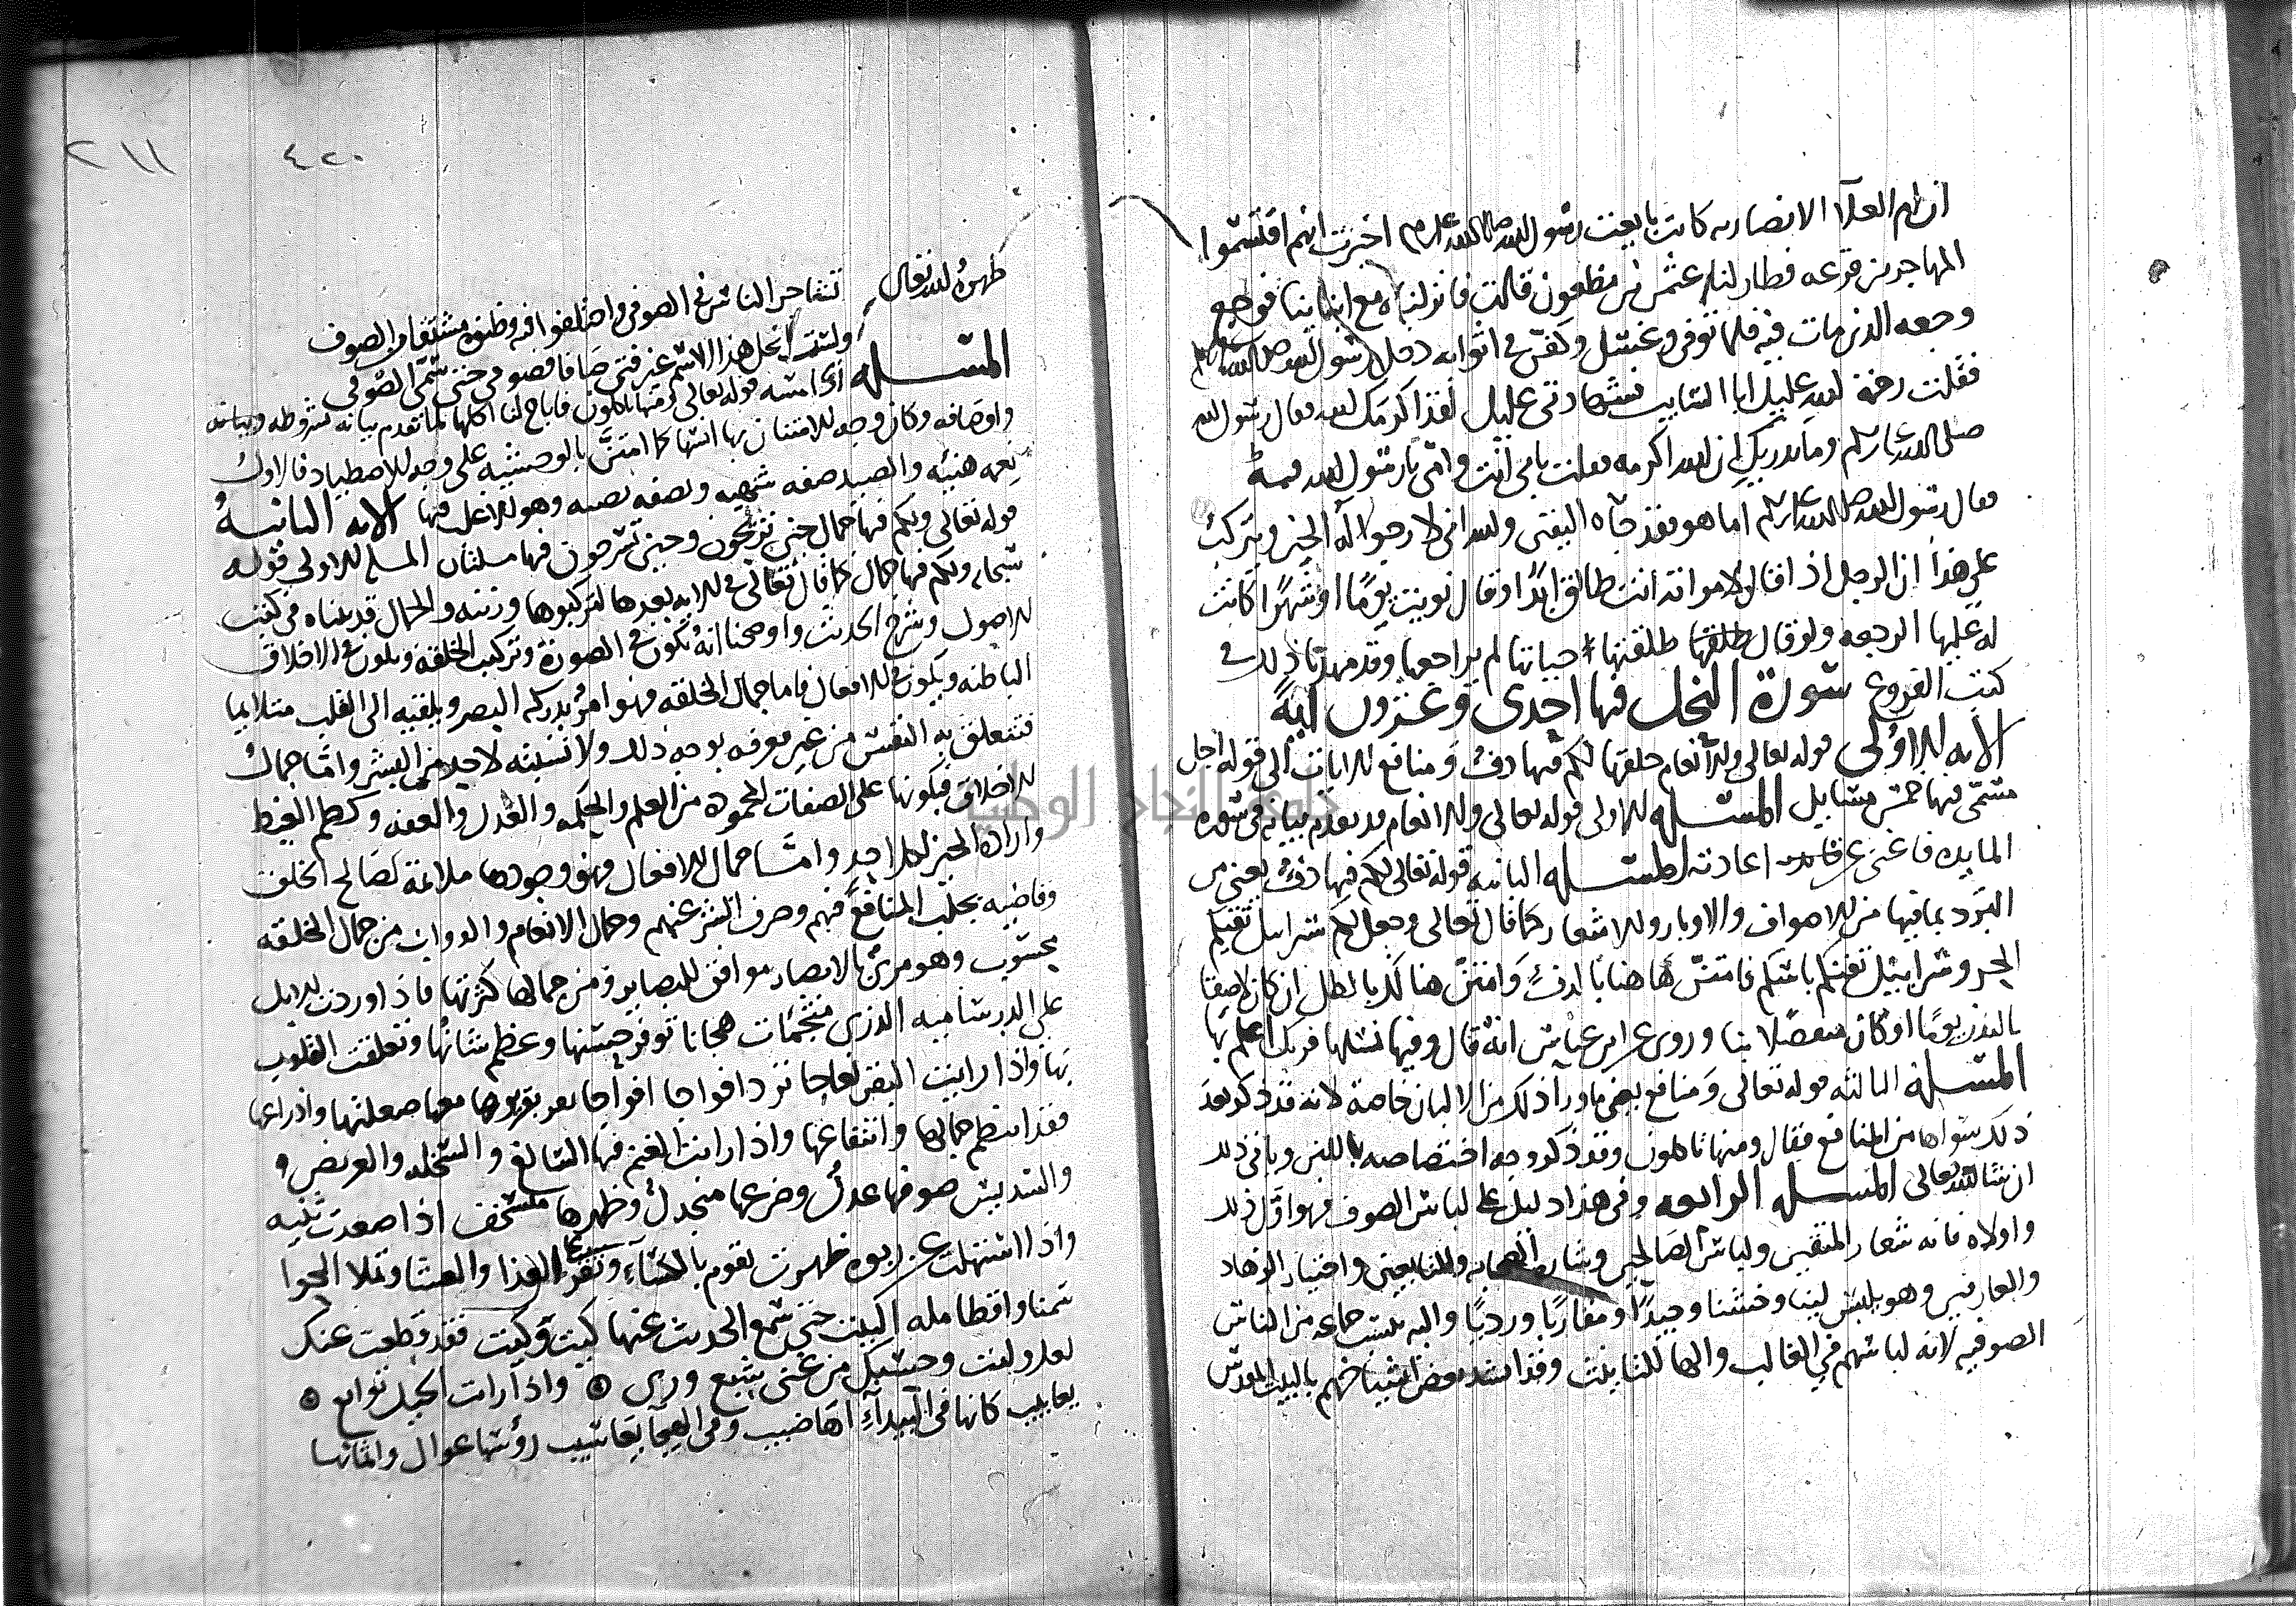 ان ام العلآ الانصاريه كانت بايعت رسول الله صلى الله عليه وسلم اخبرت انهم اقتسموا
المهاجرين قرعه فطار لنا عثمن بن مظعون قالت فانزلناه مع ابنائنا فوجع
وجعه الذي مات فيه فلما توفي وغسل وكفن في اثوابه دخل رسول الله صلى الله عليه وسلم
فقلت رحمة الله عليك ابا السايب فشهادتي عليك لقد اكرمك الله فقال رسول الله
صلى الله عليه وسلم وما يدريك ان الله اكرمه فقلت بابي انت وامي يا رسول الله فمه
فقال رسول الله صلى الله عليه وسلم اما هو فقد جآه اليقين والله اني لارجوا له الخير ويتركب
على هذا ان الرجل اذا قال لامراته انت طالق ابدا وقال نويت يوما او شهرا كانت
له عليها الرجعه ولو قال طلقها طلقتها حياتها لم يراجعها وقد مهدنا ذلك في
كتب الفروع سورة النحل فيها احدى وعشرون اية
الايه الاولى قوله تعالى والانعام خلقها لكم فيها دفء ومنافع الايات الى قوله اجل
مسمى فيها خمس مسايل المسله الاولى قوله تعالى والانعام قد تقدم بيانه في سورة
المايده فاغنى عن اعادته المسله الثانيه قوله تعالى لكم فيها دفء يعني من
البرد بما فيها من الاصواف والاوبار والاشعار كما قال تعالى وجعل لكم سرابيل تقيكم
الحر وسرابيل تقيكم باسكم فامتن هاهنا بالدفء وامتن هنالك بالظل ان كان لاصقا
بالبدن يوما او كان منفصلا بنا وروي عن ابن عباس انه قال وفيها نسلها فربك اعلم بها
المسله الثالثه قوله تعالى ومنافع يعني ما ورآ ذلك من الالبان خاصة لانه قد ذكر بعد
ذلك سواها من المنافع فقال ومنها تاكلون وقد ذكر وجه اختصاصه باللبن وياتي ذلك
ان شا الله تعالى المسله الرابعه وفي هذا دليل على لباس الصوف فهو اول ذلك
واولاه فانه شعار المتقين ولباس الصالحين وشارة الصحابه والتابعين واختيار الزهاد
والعارفين وهو يلبس لينا وخشنا وجيدا ومقاربا ورديا واليه ينسب جماعه من الناس
الصوفيه لانه لباسهم في الغالب واليا للنسب والها للتانيث وقد انشد بعض اشياخهم بالبيت المقدس
٤٢٠ ٢١١
طهره الله تعالى
تشاجر الناس في الصوفي واختلفوا فيه وظنوه مشتقا من الصوف
ولست انحل هذا الاسم غير فتى صافا فصوفي حتى سمى الصوفي
المسله الخامسه قوله تعالى ومنها تاكلون فاباح لنا اكلها لما تقدم بيانه بشروطه وبيانه
واوصافه وكان وجه الامتنان بها انسها كما امتن بالوحشيه على وجه الاصطياد فالاول
نعمه هنيئه والصيد صفه شهيه ونصفه نصبه وهو الاغلب فيها الايه الثانيه
قوله تعالى ولكم فيها جمال حين تريحون وحين تسرحون فيها مسلتان المسله الاولى قوله
سبحانه ولكم فيها جمال كما قال تعالى في الايه بعدها لتركبوها وزينه والجمال قد بيناه في كتب
الاصول وشرح الحديث واوضحنا انه يكون في الصورة وتركيب الخلقه ويكون في الاخلاق
الباطنه ويكون في الافعال فاما جمال الخلقه فهو امر يدركه البصر ويلقيه الى القلب متلايما
فتتعلق به النفس من غير معرفه بوجه ذلك ولا نسبته لاحد من البشر واما جمال
الاخلاق فبكونها على الصفات المحموده من العلم والحكمه والعدل والعفه وكظم الغيظ
وارادة الخير لكل احد واما جمال الافعال فهو وجودها ملائمة لصالح الخلق
وقاضيه بجلب المنافع فيهم وصرف الشر عنهم وجمال الانعام والدواب من جمال الخلقه
محسوب وهو مريئ بالابصار موافق للبصاير ومن جمالها كثرتها فاذا وردت الابل
على الدر سامية الذرى متجممات هجانا توفر حسنها وعظم شانها وتعلقت القلوب
بها واذا رايت البقر نعاجا ترد افواجا افواجا تقر بقريرها معها صعلتها واذرابها
فقد انتظم جمالها وانتفاعها واذا رايت الغنم فيها السالغ والسخله والعريض و
والسديس صوفها عدل وضرعها منجدل وظهرها منسجف اذا صعدت ثنيه
واذا اسهلت عن ربوه ظهرت تقوم بالكسآء وتقر على الغذا والعشا وتملا الحوا
سمنا واقطا مله البيت حتى تسمع الحديث عنها كيت وكيت فقد قطعت عنك
لعل وليت وحسبك من غنى شبع وري واذا رات الخيل نوابع
يعابيب كانها في البيدآء اهاضيب وفي الهيجآ يعاسيب رؤسها عوال واثمانها